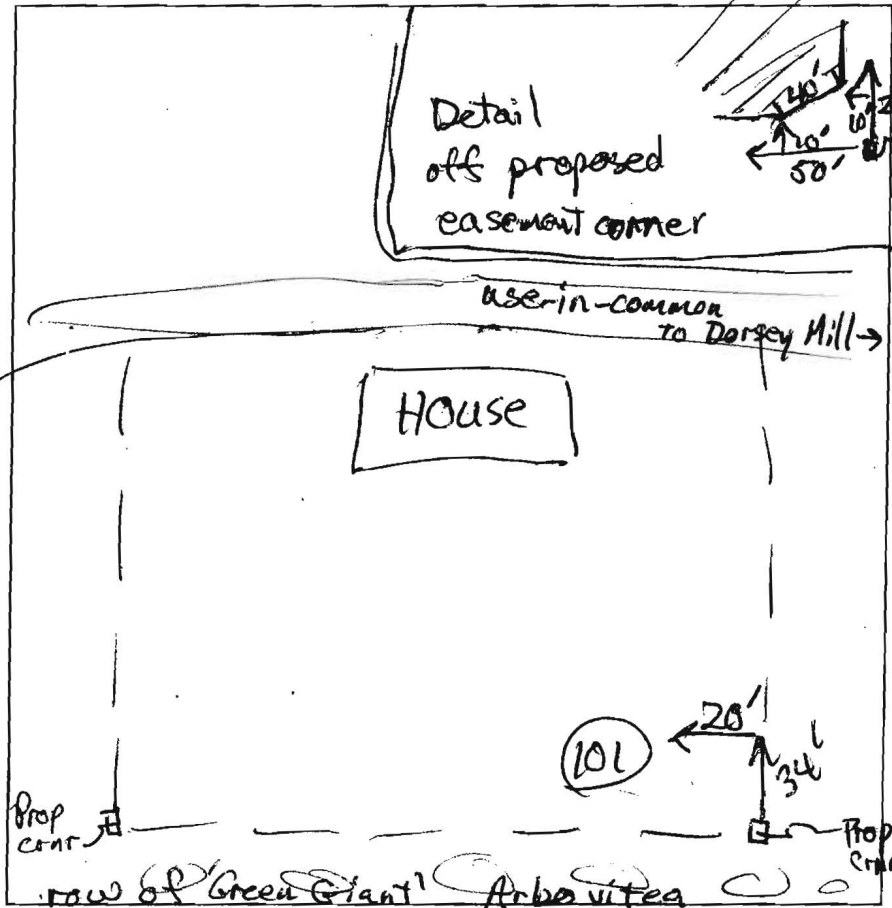 Detail
off proposed
easement corner
40'
20'
50'
use-in-common
to Dorsey Mill →
House
20'
101
34'
Prop
crnr
Prop
Crnr
row of 'Green Giant' Arbovitea